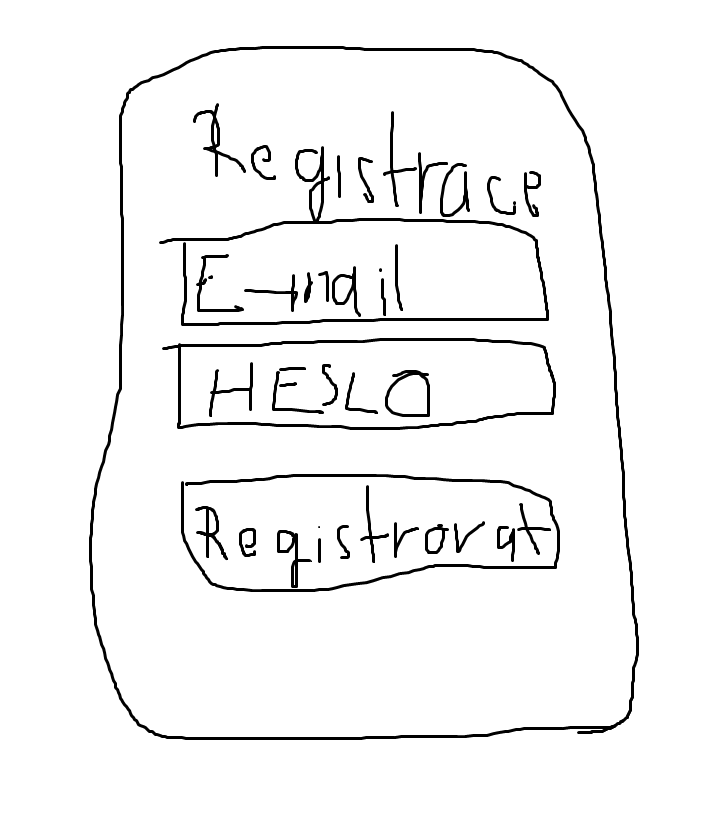 Registrace
E-mail
HESLO
Registrovat